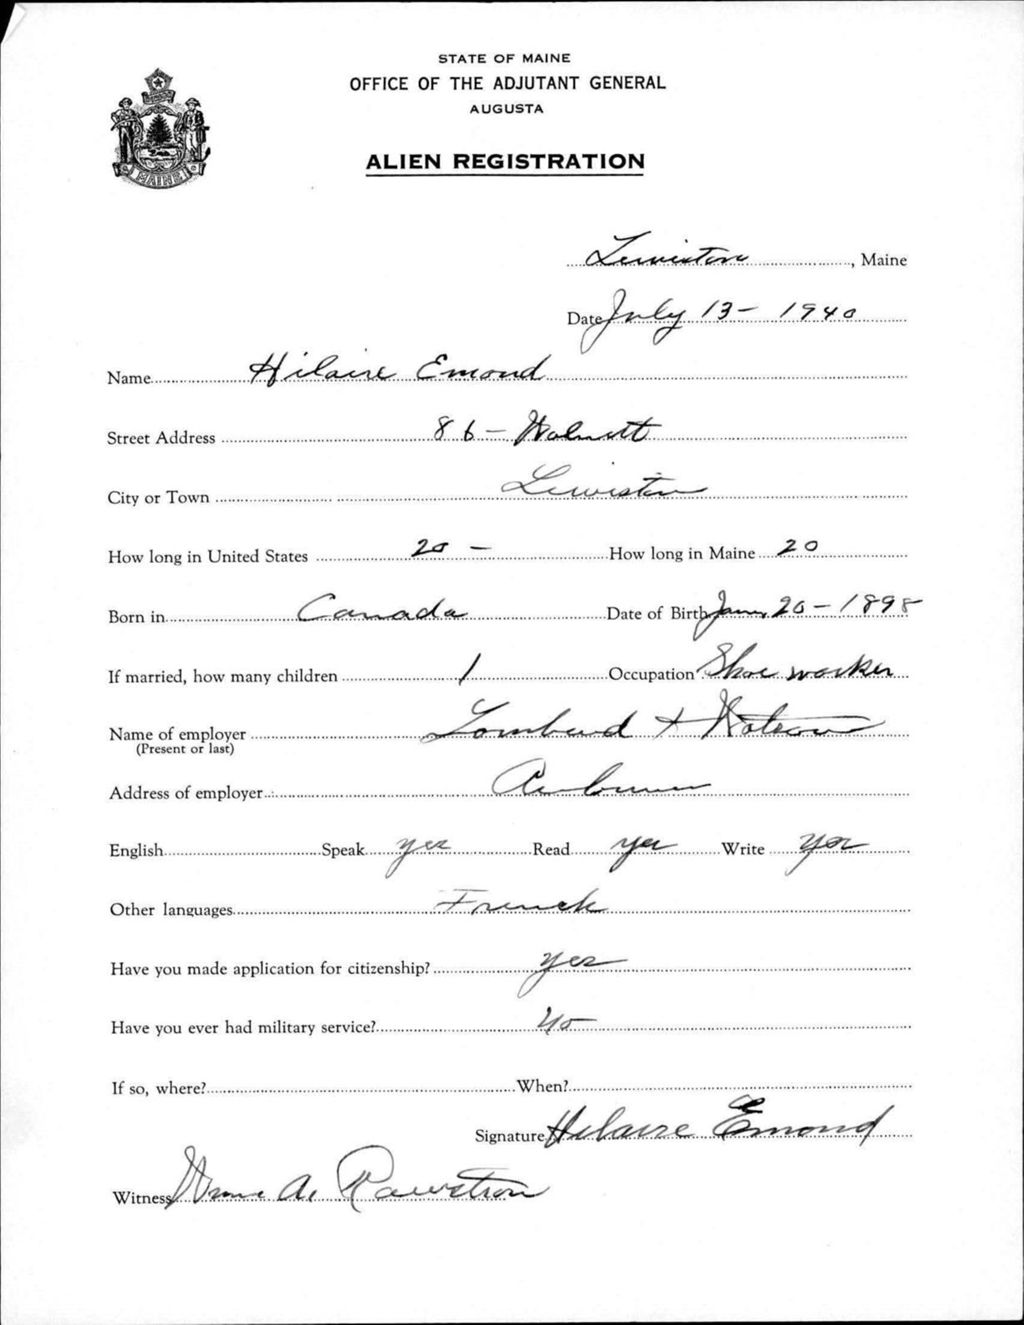 STATE OF MAINE
OFFICE OF THE ADJUTANT GENERAL
AUGUSTA
MAINE
ALIEN REGISTRATION
Lewiston, Maine
Date July 13 - 1940
Name Hilaire Emond
Street Address 86 - Walnutt
City or Town Lewiston
How long in United States 20 - How long in Maine 20
Born in Canada Date of Birth Jan, 20 - 1898
If married, how many children 1 Occupation Shoe worker
Name of employer Lombard + Watson
(Present or last)
Address of employer Auburn
English Speak yes Read yes Write yes
Other languages French
Have you made application for citizenship? yes
Have you ever had military service? no
If so, where? When?
Signature Hilaire Emond
Witness A. Rawstron